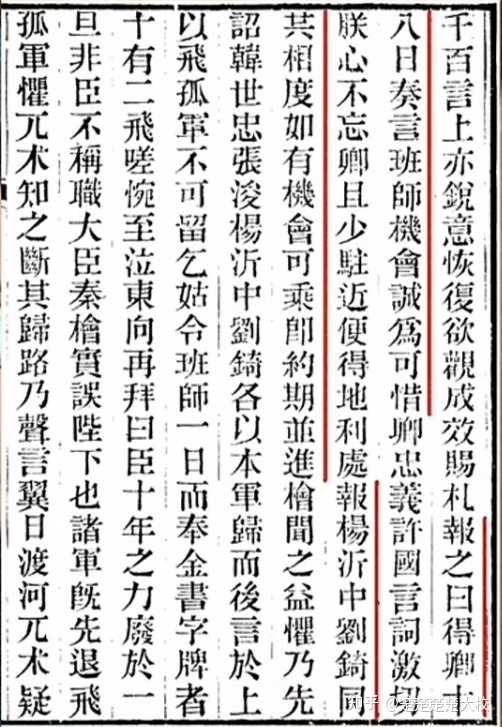 千百言上亦銳意恢復欲觀成效賜札報之曰得卿十
八日奏言班師機會誠爲可惜卿忠義許國言詞激切
朕心不忘卿且少駐近便得地利處報楊沂中劉錡同
共相度如有機會可乘卽約期並進檜聞之益懼乃先
詔韓世忠張浚楊沂中劉錡各以本軍歸而後言於上
以飛孤軍不可留乞姑令班師一日而奉金書字牌者
十有二飛嗟惋至泣東向再拜曰臣十年之力廢於一
旦非臣不稱職大臣秦檜實誤陛下也諸軍旣先退飛
孤軍懼兀术知之斷其歸路乃聲言翼日渡河兀术疑
知乎 @大校